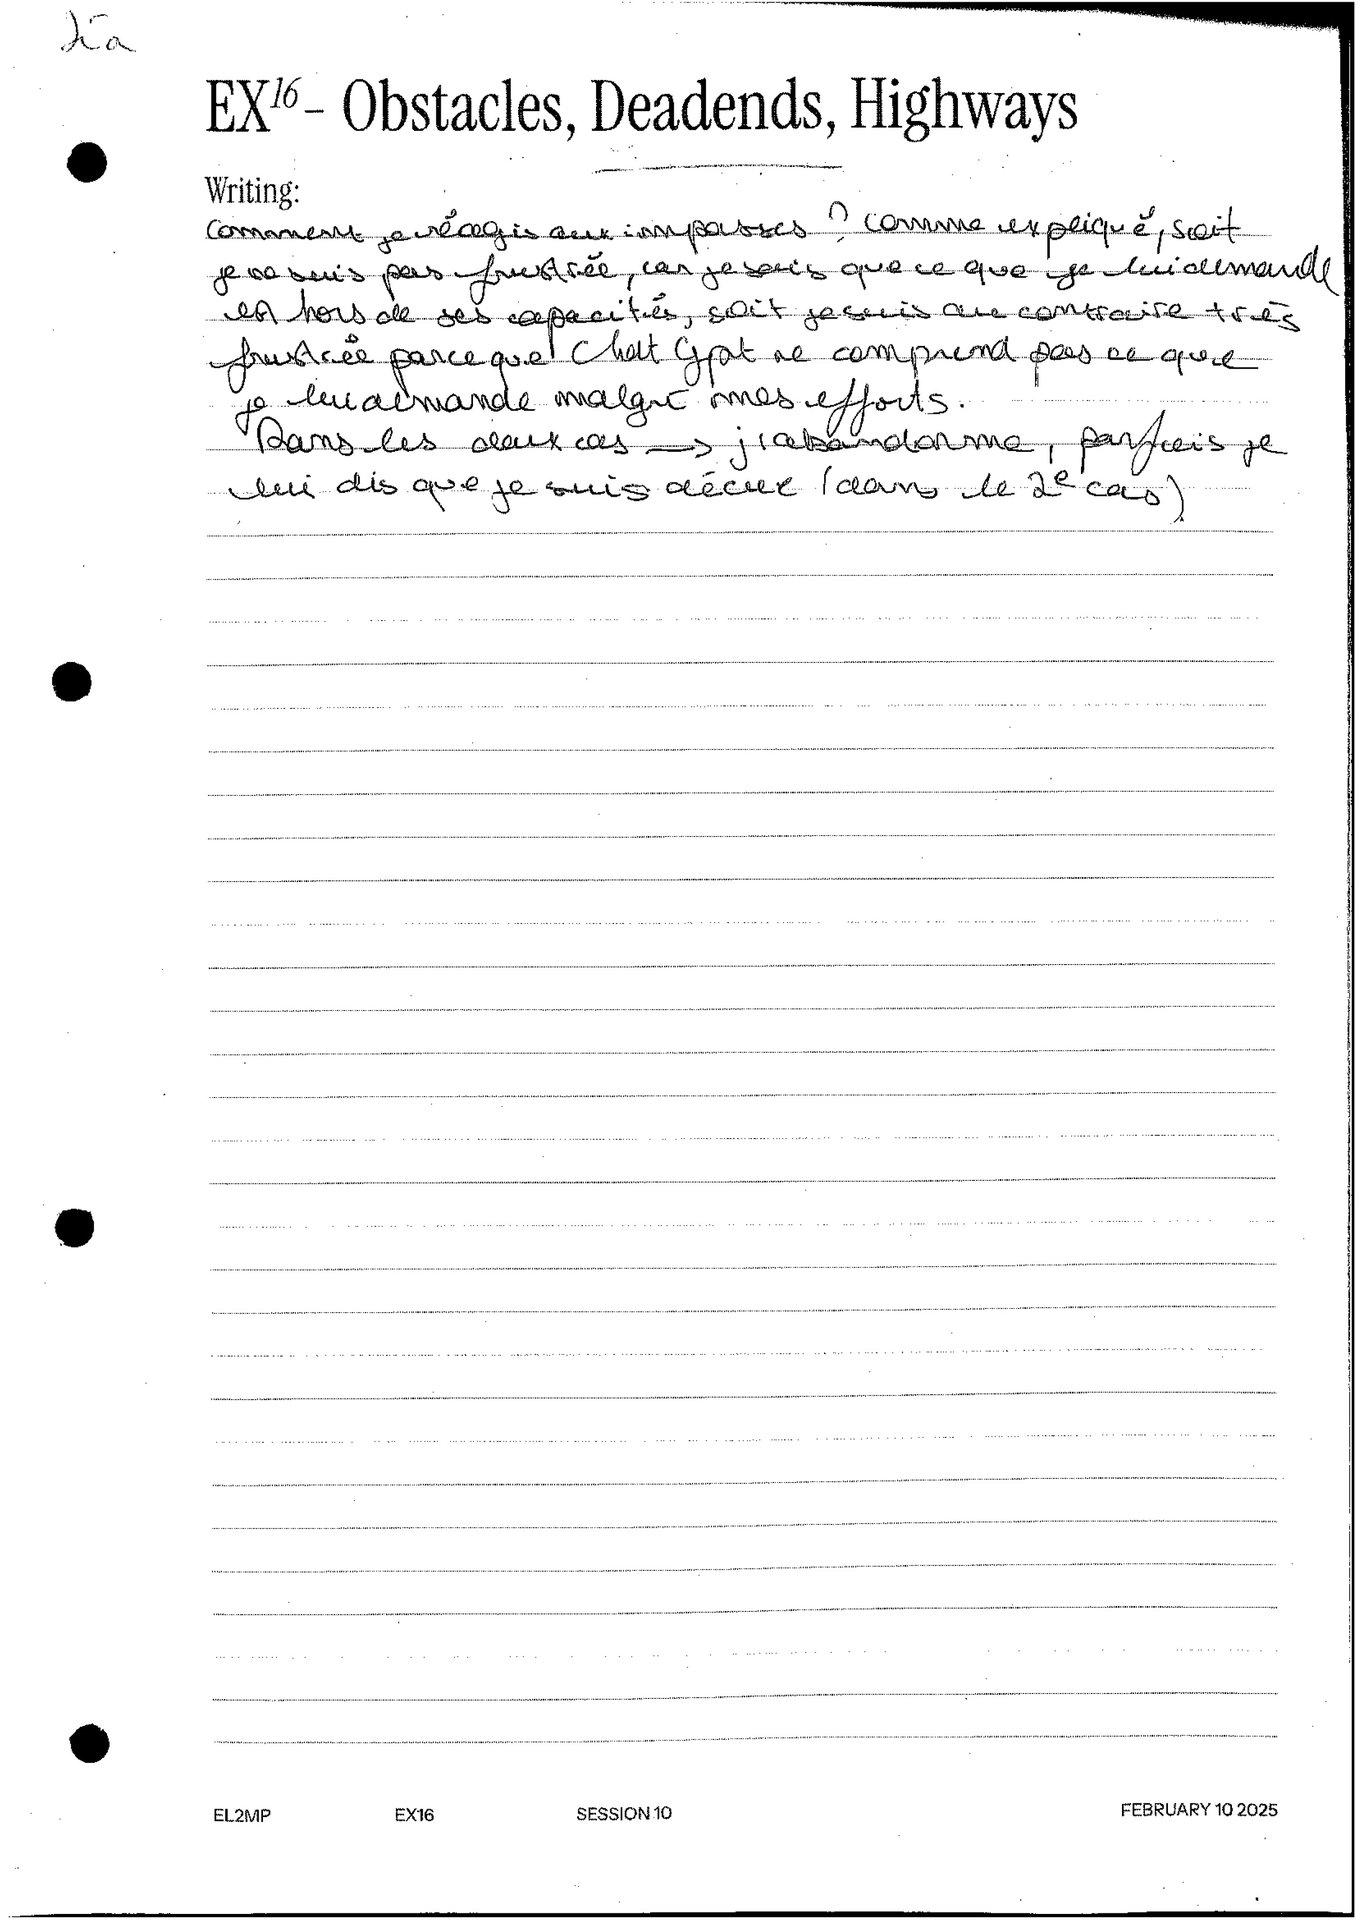 EX16 - Obstacles, Deadends, Highways
Writing:
Comment je réagis aux impasses ? Comme expliqué, soit
je ne suis pas frustrée, car je sais que ce que je lui demande
est hors de ses capacités, soit je suis au contraire très
frustrée parce que Chat Gpt ne comprend pas ce que
je lui demande malgré mes efforts.
Dans les deux cas → j'abandonne, parfois je
lui dis que je suis décue (dans le 2e cas)
EL2MP EX16 SESSION 10 FEBRUARY 10 2025